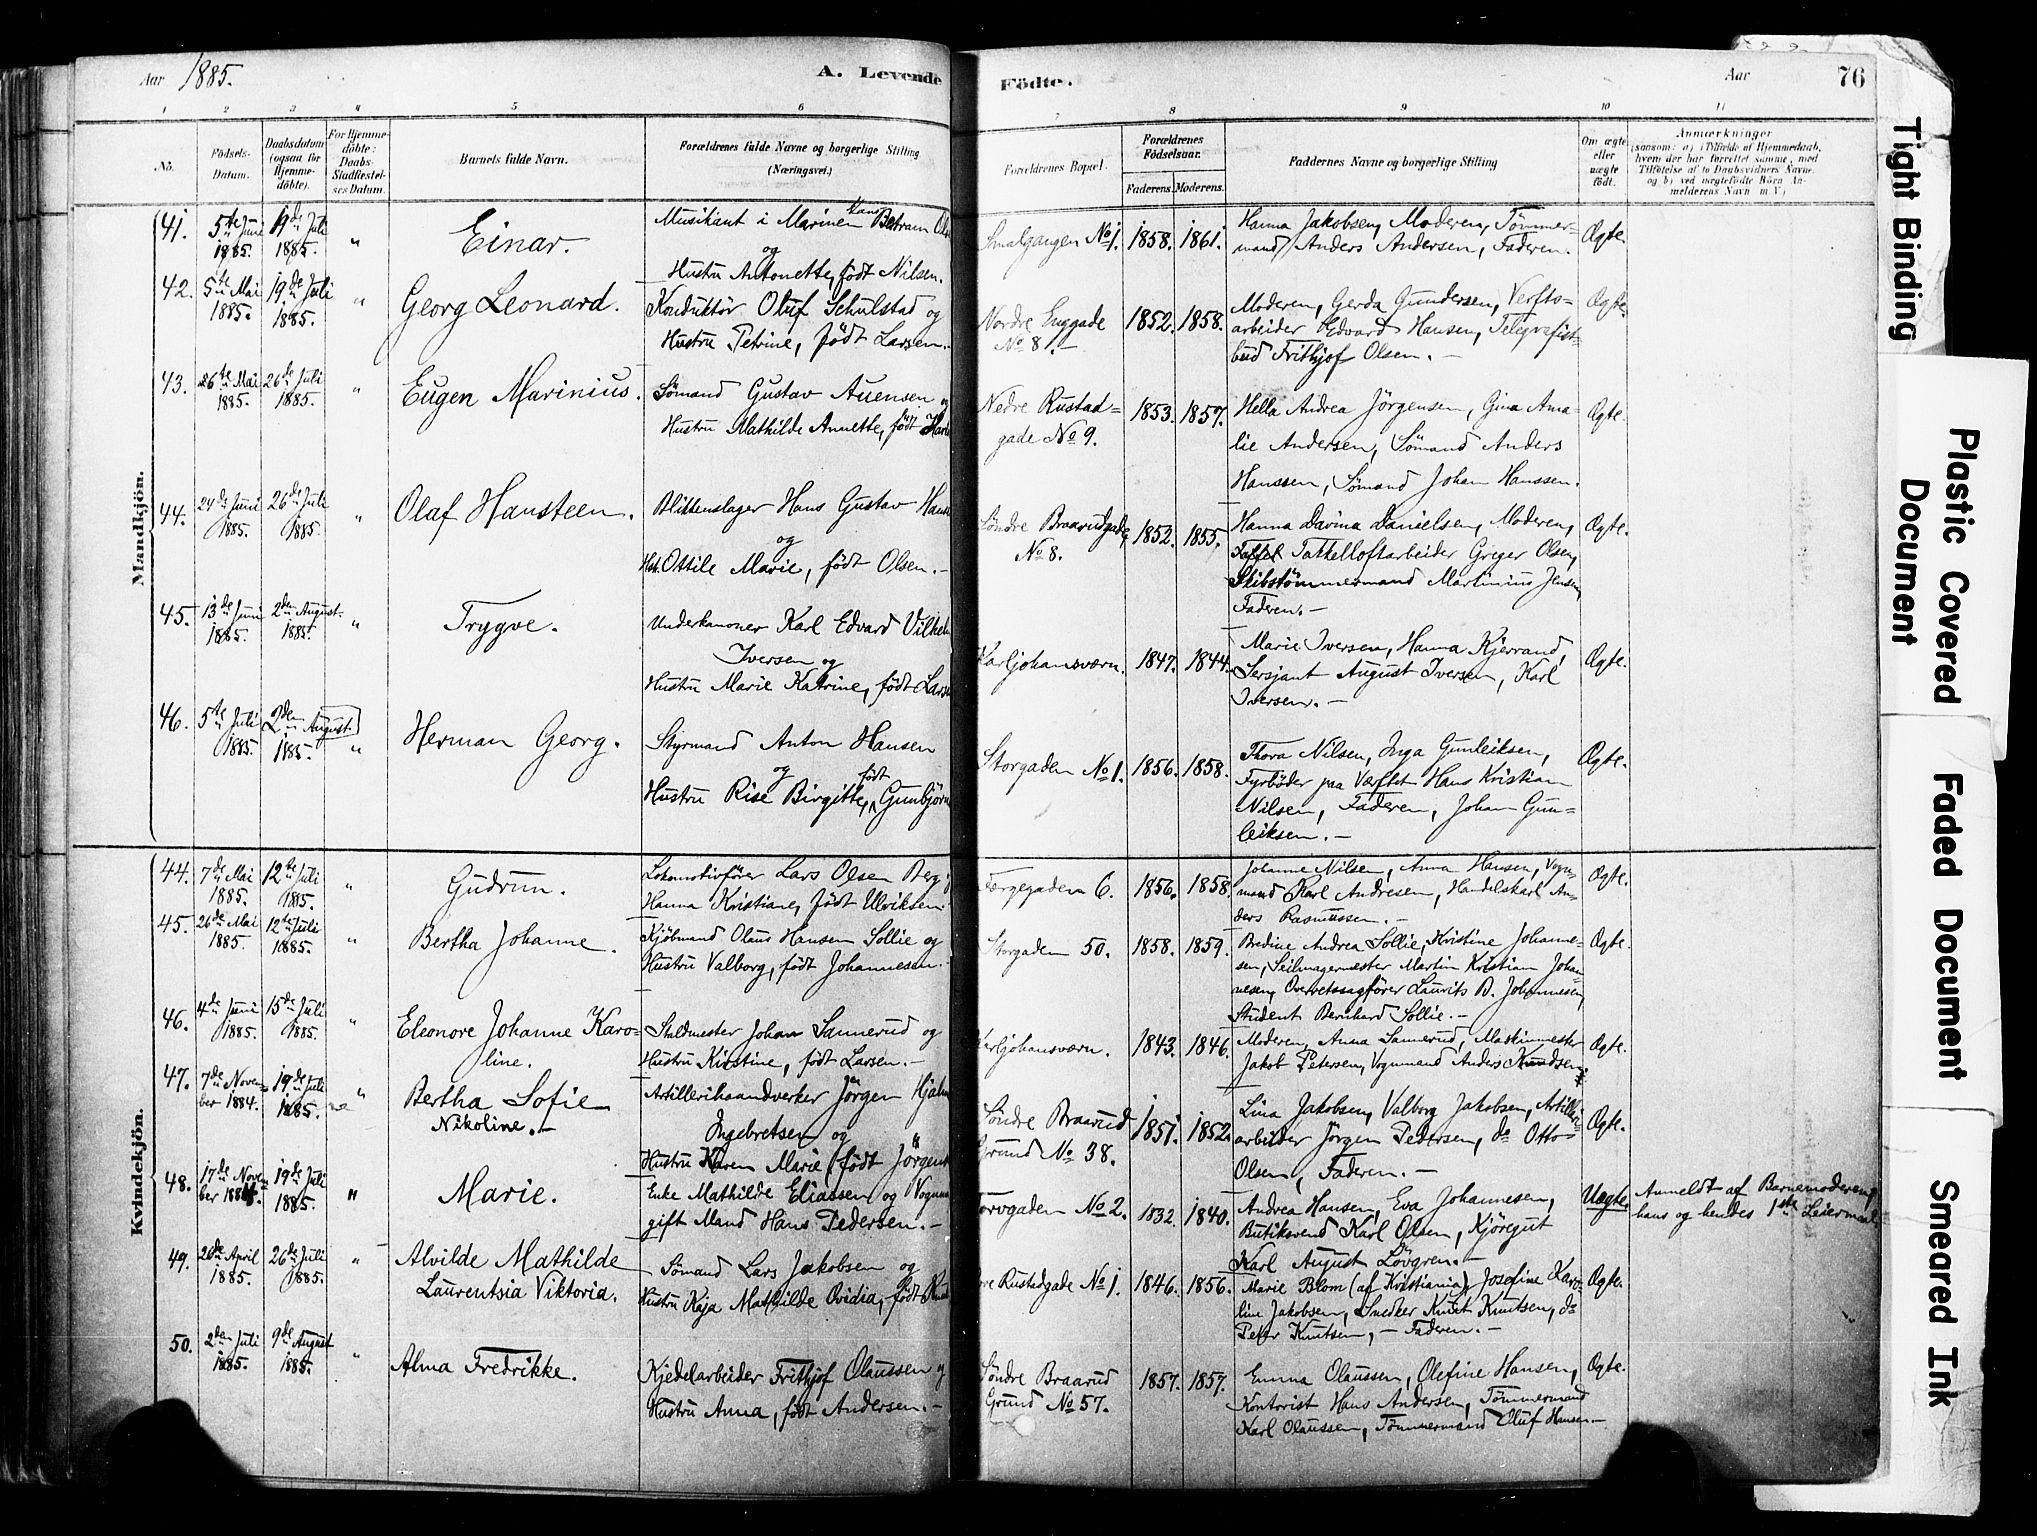 Aar 1885.
A. Levende
Födte.
Aar
76
1 2 3 4 5 6 7 8 9 10 11
No.
Födsels-
Datum.
Daabsdatum
(ogsaa for
Hjemme-
döbte).
For Hjemme-
döbte:
Daabs-
Stadfæstel-
ses Datum.
Barnets fulde Navn.
Forældrenes fulde Navne og borgerlige Stilling
(Næringsvei.)
Forældrenes Bopæl.
Forældrenes
Födselsaar.
Faderens. Moderens.
Faddernes Navne og borgerlige Stilling
Om ægte
eller
uægte
födt.
Anmærkninger
(saasom: a) i Tilfælde af Hjemmedaab,
hvem der har forrettet samme, med
Tilföielse af to Daabsvidners Navne.
og b) ved uægtefödte Börn An-
melderens Navn m. V.)
Mandkjön.
41. 5te Juni 1885. 19de Juli 1885. " Einar.
Musikant i Marinen Hans Betram
og
Hustru Antonette, født Nilsen.
Smalgangen No 1. 1858. 1861.
Hanna Jakobsen, Moderen, Tømmer-
mand Anders Andersen, Faderen.
Ægte.
42. 5te Mai 1885. 19de Juli 1885. " Georg Leonard.
Konduktör Oluf Schulstad og
Hustru Petrine, født Larsen.
Nordre Enggade
No 8. 1852. 1858.
Moderen, Gerda Gundersen, Verfts-
arbeider Edvard Hansen, Telegrafist-
bud Frithjof Olsen.
Ægte.
43. 26te Mai 1885. 26de Juli 1885. " Eugen Marinius.
Sømand Gustav Auensen
Hustru Mathilde Annette, født
Nedre Rustad-
gade No 9. 1853. 1857.
Hella Andrea Jörgensen, Gina Ama-
lie Andersen, Sømand Anders
Hanssen, Sømand Johan Hanssen.
Ægte.
44. 24de Juni 1885. 26de Juli 1885. " Olaf Hansteen.
Blikkenslager Hans Gustav
og
Hst. Ottile Marie, født Olsen.
Søndre Braarudgade
No 8. 1852. 1855.
Hanna Davina Danielsen, Moderen,
Takkelloftarbeider Greger Olsen,
Skibstømmermand Martinius Jensen,
Faderen.
Ægte.
45. 13de Juni 1885. 2den August 1885. " Trygve.
Underkanoner Karl Edvard
Iversen og
Hustru Marie Katrine, født
Karljohansværn. 1847. 1844.
Marie Iversen, Hanna Kjerrand,
Sersjant August Iversen, Karl
Iversen.
Ægte.
46. 5te Juli 1885. 2den August 1885. " Herman Georg.
Styrmand Anton Hansen
og
Hustru Rise Birgitte, født
Storgaden No 1. 1856. 1858.
Thora Nilsen, Inga Gunleiksen,
Fyrbøder paa Værftet Hans Kristian
Nilsen, Faderen, Johan Gun-
leiksen.
Ægte.
Kvindekjön.
44. 7de Mai 1885. 12te Juli 1885. " Gudrun.
Lokomotivfører Lars Olsen
Hanna Kristiane, født Ulriksen.
Torggaden 6. 1856. 1858.
Johanne Nilsen, Anna Hansen, Vogn-
mand Karl Andresen, Handelskarl An-
ders Rasmussen.
Ægte.
45. 26de Mai 1885. 12te Juli 1885. " Bertha Johanne.
Kjöbmand Olaus Hansen Sollie og
Hustru Valborg, født Johannesen.
Storgaden 50. 1858. 1859.
Bredine Andrea Sollie, Kristine Johanne-
sen, Seilmagermester Martin Kristian Johan-
nesen, Overretssagfører Laurits B. Johannesen,
Student Bernhard Sollie.
Ægte.
46. 4de Juni 1885. 15de Juli 1885. " Eleonore Johanne Karo-
line.
Staldmester Johan Sannerud og
Hustru Kristine, født Larsen.
Karljohansværn. 1843. 1846.
Moderen, Anna Sannerud, Maskinmester
Jakob Petersen, Vognmand Anders Knudsen.
Ægte.
47. 7de Novem-
ber 1884. 19de Juli 1885. " Bertha Sofie
Nikoline.
Artillerihaandverker Jörgen
Ingebretsen og
Hustru Karen Marie, født
Søndre Braarud
Grund No 38. 1851. 1852.
Lina Jakobsen, Valborg Jakobsen, Artilleri-
arbeider Jörgen Pedersen, do Otto
Olsen, Faderen.
Ægte.
48. 17de Novem-
ber 1884. 19de Juli 1885. " Marie.
Enke Mathilde Eliassen og
gift Mand Hans Pedersen.
Torvgaden No 2. 1832. 1840.
Andrea Hansen, Eva Johannesen,
Butiksvend Karl Olsen, Kjöregut
Karl August Lövgren.
Uægte.
Anmeldt af Barnemoderen,
hans og hendes 1ste Leiermaal
49. 26de April 1885. 26de Juli 1885. " Alvilde Mathilde
Laurentsia Viktoria.
Sømand Lars Jakobsen og
Hustru Kaja Mathilde Ovidia, født
Rustadgade No 1. 1846. 1856.
Marie Blom (af Kristiania), Josefine Karo-
line Jakobsen, Snedker Knut Knutsen, do
Peter Knutsen, - Faderen.
Ægte.
50. 2den Juli 1885. 9de August 1885. " Alma Fredrikke.
Kjedelarbeider Frithjof Olaussen og
Hustru Anna, født Andersen.
Søndre Braarud
Grund No 57. 1857. 1857.
Emma Olaussen, Olefine Hansen,
Kontorist Hans Andersen, Tømmermand
Karl Olaussen, Tømmermand Oluf Hansen
Ægte.
Tight Binding
Plastic Covered
Document
Faded Document
Smeared Ink